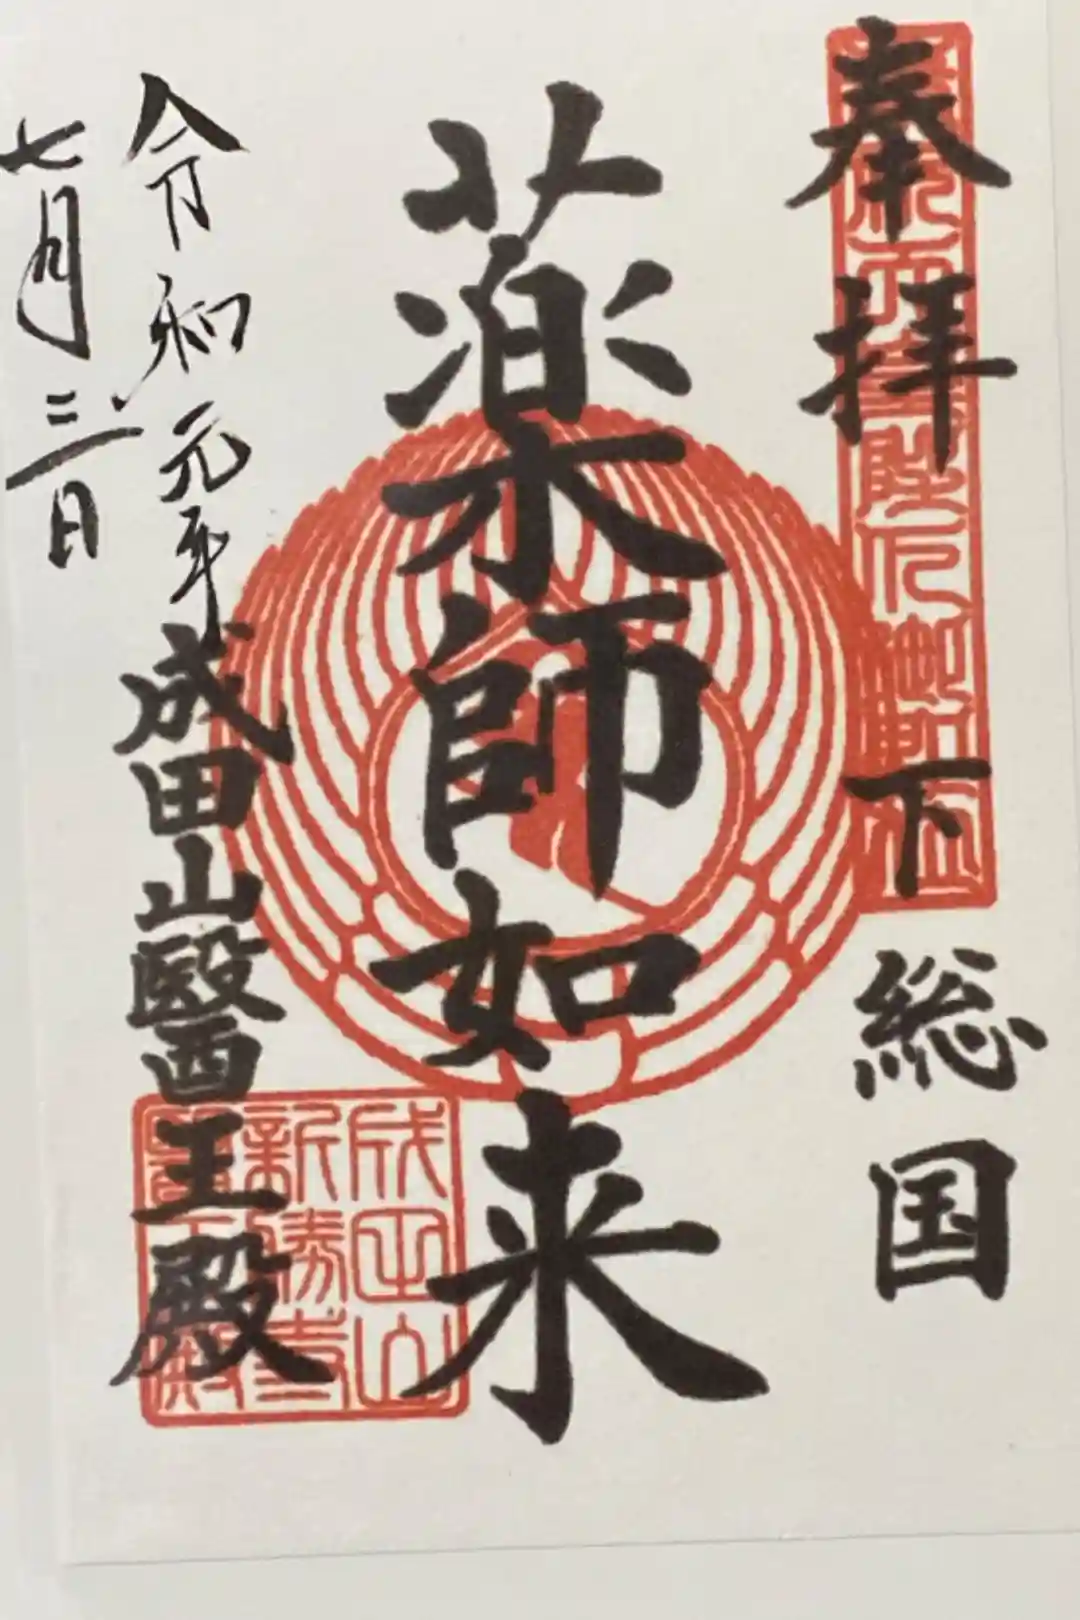 奉拝 下総国
薬師如来
令和元年
七月三日
成田山醫王殿
成田山
新勝寺
醫王殿